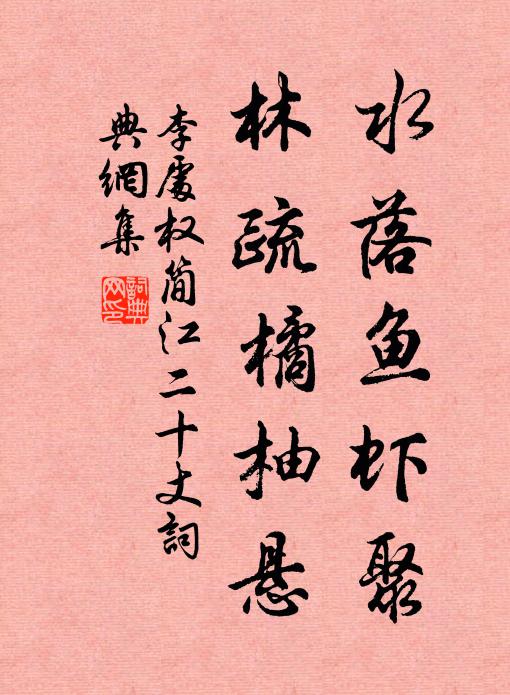 水落鱼虾聚
林疏橘柚悬
李處权简江二十丈詞
典網集
詞典
网印